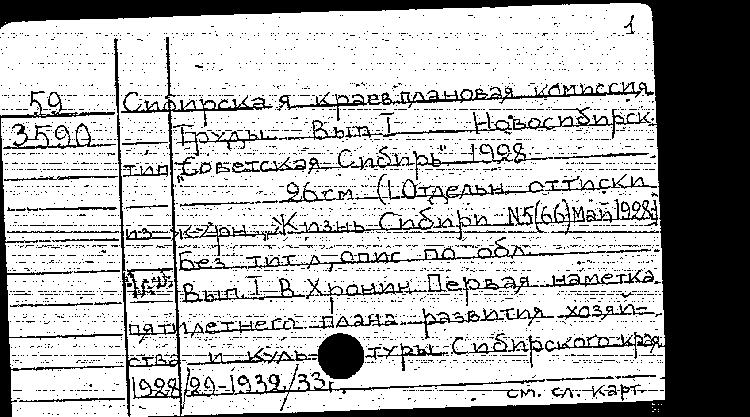 1
59 Сибирская краев. плановая комиссия
3590 Труды Вып I Новосибирск
тип „Советская Сибирь" 1928
26 см (1. Отдельн. оттиски
из журн „Жизнь Сибири N5(66) Май 1928)
Без тит л, опис. по обл.
Вып. I В. Хронин Первая наметка
пятилетнего плана развития хозяй-
ства и культуры Сибирского края
1928/29-1932/33г.
см. сл. карт.